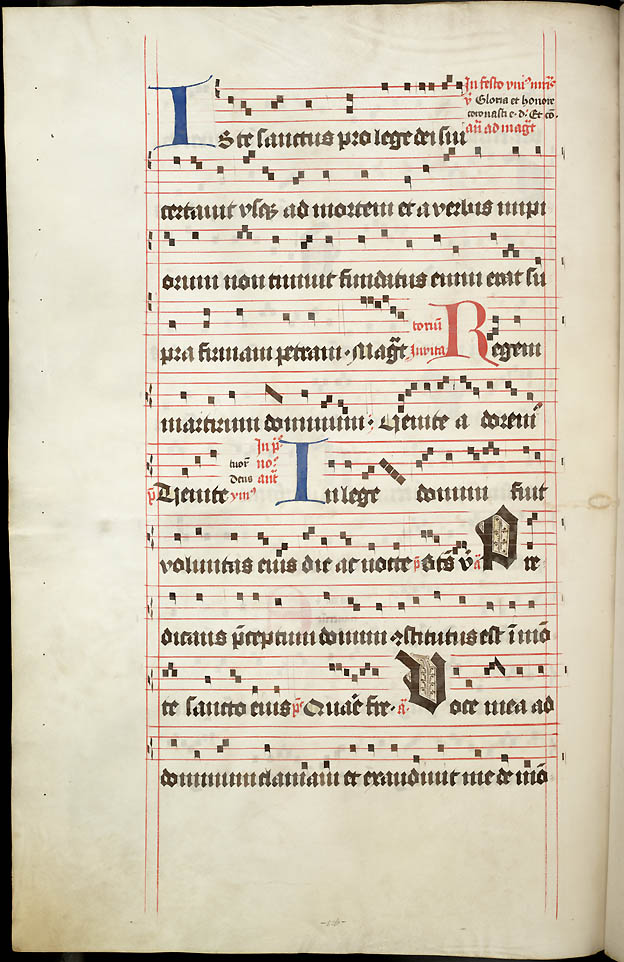 In festo vni᷒ mr̃is
v̄ Gloria et honore
coronasti e. d. Et cō.
añ ad mag̃t
Iste sanctus pro lege dei sui
certauit vsqꝫ ad mortem et a verbis impi
orum non timuit funditus enim erat su
pra firmam petram. Mag̃t
toriū
Inuita
Regem
martirum dominum. Venite a doremꝰ
p̄s Venite
tuor̄
deus
In p̄º
no.
añt
viiiꝰ
In lege domini fuit
voluntas eius die ac nocte p̄s Btūs v̄ a Pre
dicans p̄ceptum domini ꝯstitutus est ī mō
te sancto eius p̄s Quar̄e fre. a Voce mea ad
dominum clamaui et exaudiuit me de mō